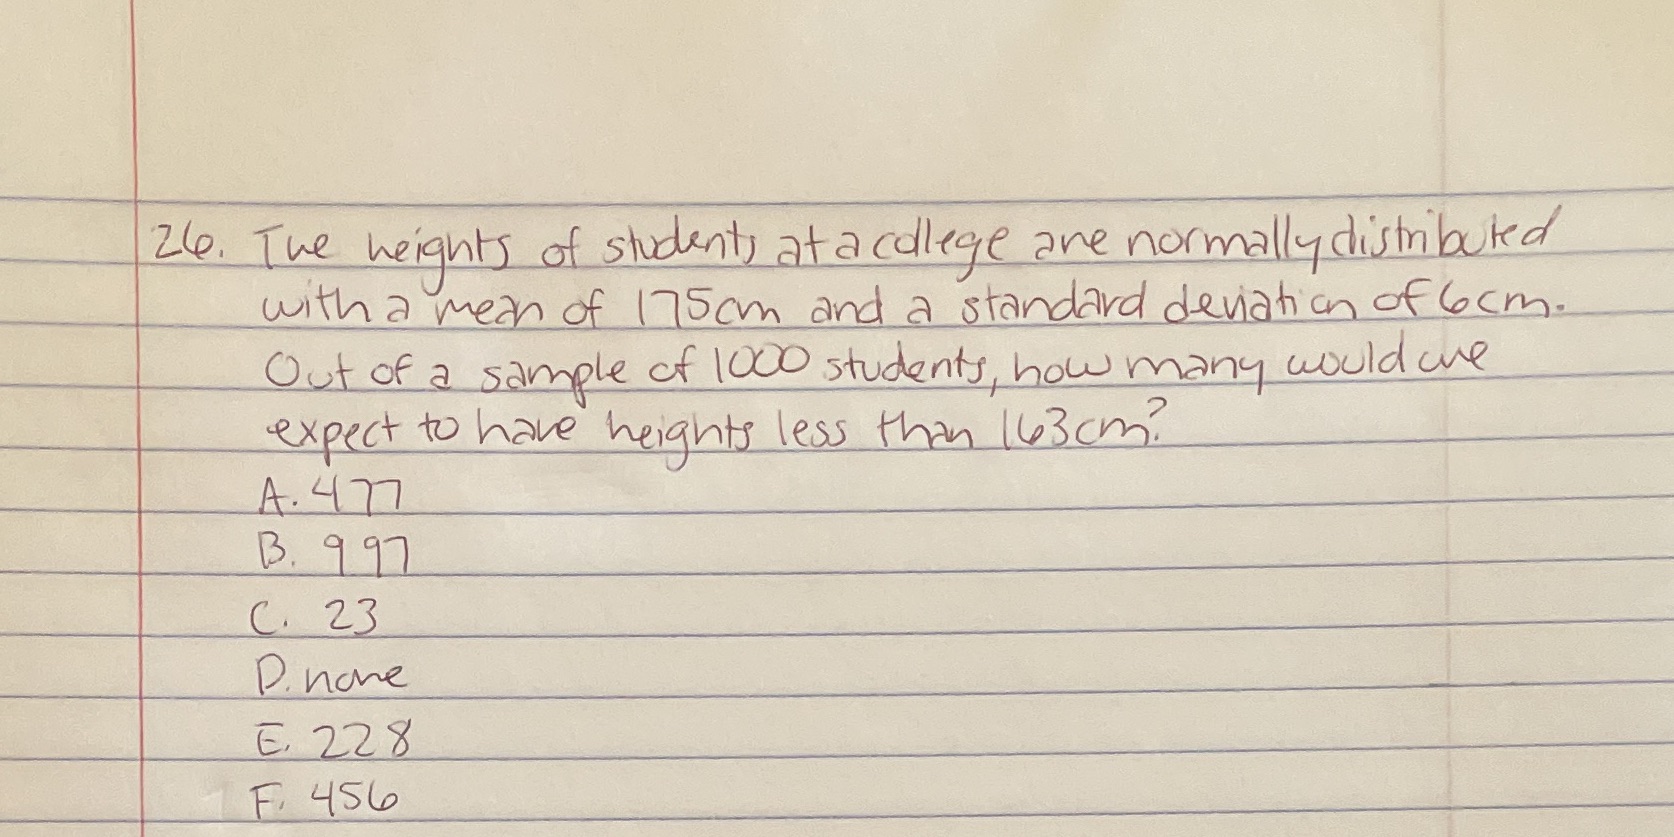 26. The heights of students at a college are normally distributed
with a mean of 175cm and a standard deviation of 6cm.
Out of a sample of 1000 students, how many would we
expect to have heights less than 163cm?
A. 477
B. 997
C. 23
D. none
E. 228
F. 456